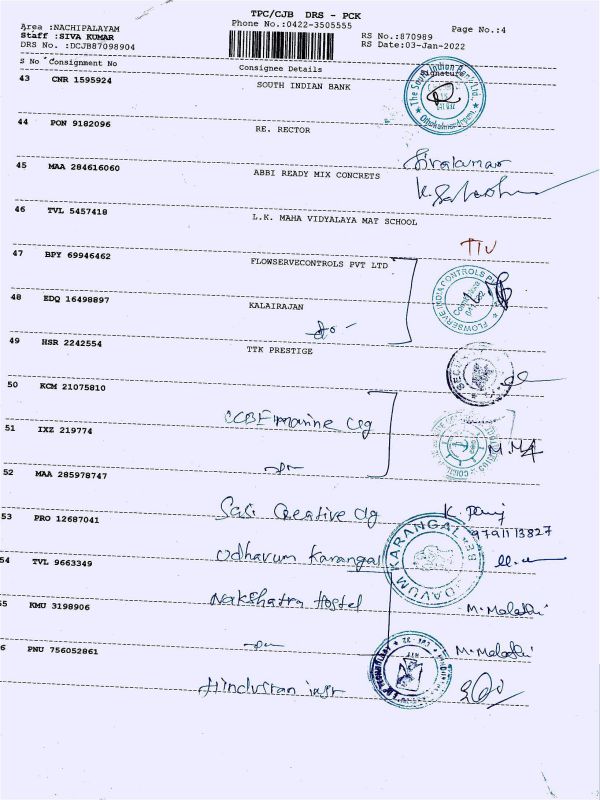 TPC/CJB DRS - PCK
Area :NACHIPALAYAM
Phone No.:0422-3505555
Page No.:4
Staff :SIVA KUMAR
RS No.:870989
DRS No. :DCJB87098904
RS Date:03-Jan-2022
S No Consignment No
Consignee Details
Signature
43 CNR 1595924 SOUTH INDIAN BANK
The South Indian Bank Ltd.
44 PON 9182096 RE. RECTOR
Sivakumar
45 MAA 284616060 ABBI READY MIX CONCRETS
46 TVL 5457418 L.K. MAHA VIDYALAYA MAT SCHOOL
47 BPY 69946462 FLOWSERVECONTROLS PVT LTD
FLOWSERVE INDIA CONTROLS
48 EDQ 16498897 KALAIRAJAN
49 HSR 2242554 TTK PRESTIGE
50 KCM 21075810
51 IXZ 219774
52 MAA 285978747
Creative clg
53 PRO 12687041
9791113827
Udhavum Karangal
UDAVUM KARANGAL
54 TVL 9663349
Nakshatra Hostel
M. Malathi
55 KMU 3198906
M. Malathi
6 PNU 756052861
Hindustan